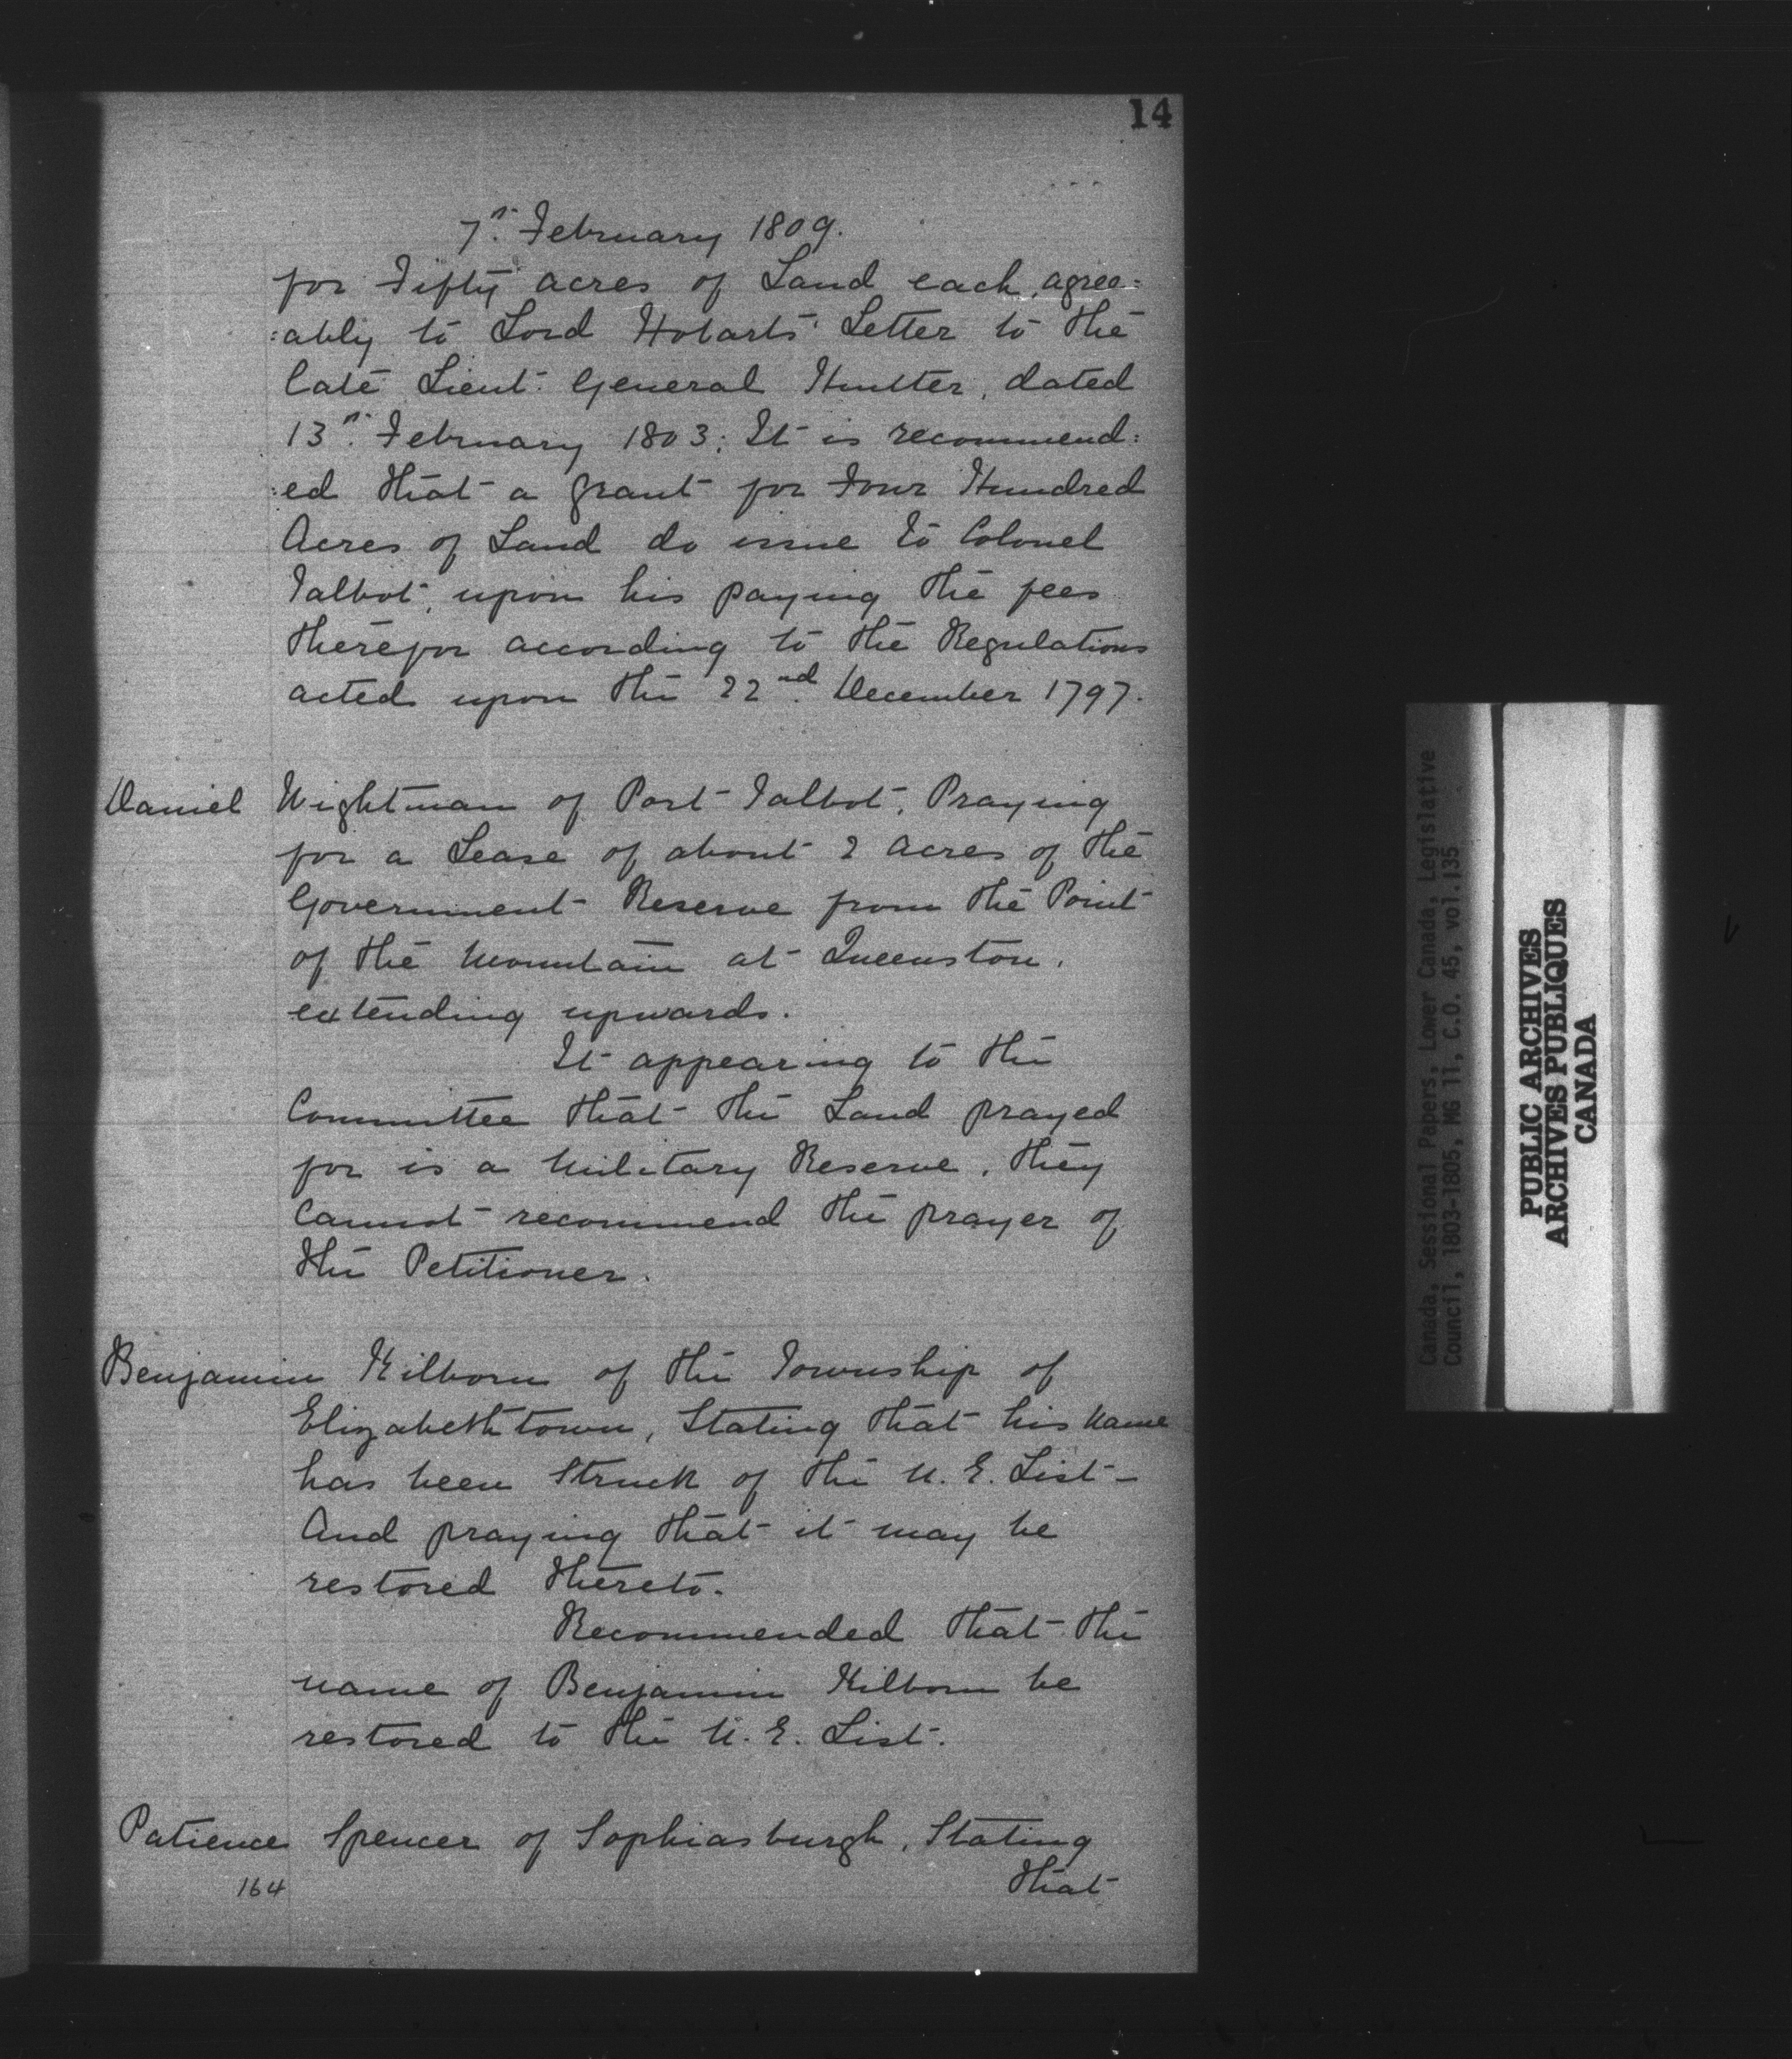 14
7th. February 1809.
for Fifty acres of Land each, agree=
=ably to Lord Hobarts Letter to the
late Lieut. General Hunter, dated
13th. February 1803; It is recommend=
=ed that a grant for Four Hundred
Acres of Land do issue to Colonel
Talbot, upon his paying the fees
therefor according to the Regulations
acted upon the 22nd. December 1797.
Daniel Wightman of Port Talbot, Praying
for a Lease of about 2 acres of the
Government Reserve from the Point
of the Mountain at Queenston,
extending upwards.
It appearing to the
Committee that the Land prayed
for is a Military Reserve, they
cannot recommend the prayer of
the Petitioner.
Benjamin Kilborn of the Township of
Elizabethtown, Stating that his Name
has been Struck of the U. E. List—
And praying that it may be
restored thereto.
Recommended that the
name of Benjamin Kilborn be
restored to the U. E. List.
Patience Spencer of Sophiasburgh, Stating
that
164
Canada, Sessional Papers, Lower Canada, Legislative
Council, 1803-1805, MG 11, C.O. 45, vol.135
PUBLIC ARCHIVES
ARCHIVES PUBLIQUES
CANADA